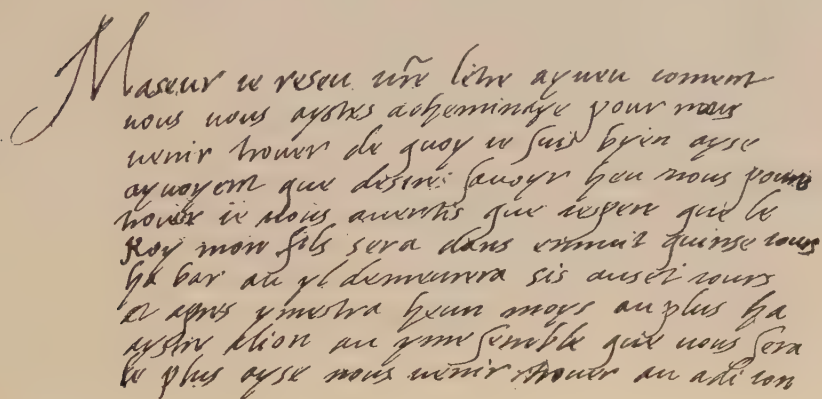 Maseur ie reseu vr̃e letre ayueu coment
vous vous aystes acheminaye pour nous
venir trouer de quoy ie suis byen ayse
ayuoyent que desires sauoyr heu nous poures
trouer ie vous auertis que iespere que le
Roy mon fils sera dans encuit quinse iours
ha bar au yl demeurera sis ouset iours
et apres ymestra heun moys au plus ha
aystre alion au yme semble que vous sera
le plus ayse nous venir trouer au adi ion